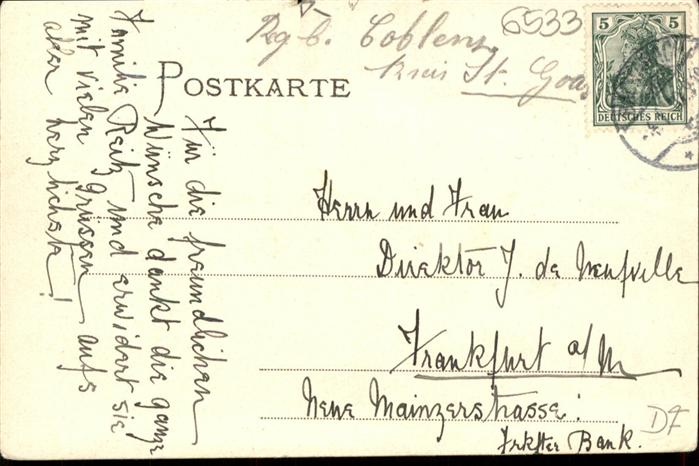 6533
Rgb. Coblenz
Kreis St. Goar
5 5
DEUTSCHES REICH
POSTKARTE
Für die freundlichen
Wünsche dankt die ganze
Familie Reitz und erwidert sie
mit vielen Grüssen aufs
aller herzlichste!
Herrn und Frau
Direktor J. de Neufville
Frankfurt a/M
Neue Mainzerstrasse.
Bank.
DF